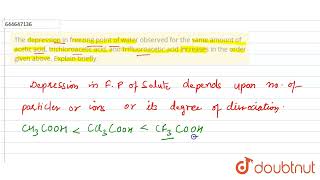 644647136
The depression in freezing point of water observed for the same amount of
acetic acid, trichloroacetic acid, and trifluoroacetic acid increases in the order
given above. Explain briefly
Depression in F.P of Solute depends upon no. of
particles or ions or its degree of dissociation.
CH3COOH < CCl3COOH < CF3COOH
doubtnut